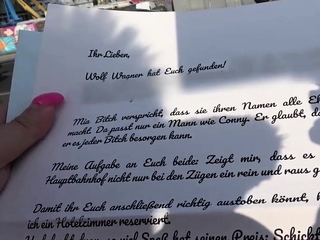 Ihr Lieben,
Wolf Wagner hat Euch gefunden!
Mia Bitch verspricht, dass sie ihren Namen alle
macht. Da passt nur ein Mann wie Conny. Er glaubt, da
er es jeder Bitch besorgen kann.
Meine Aufgabe an Euch beide: Zeigt mir, dass es
Hauptbahnhof nicht nur bei den Zügen ein rein und raus g
Damit ihr Euch anschließend richtig austoben könnt,
ich ein Hotelzimmer reserviert.
so viel Spaß hat seinen Preis: Schickt